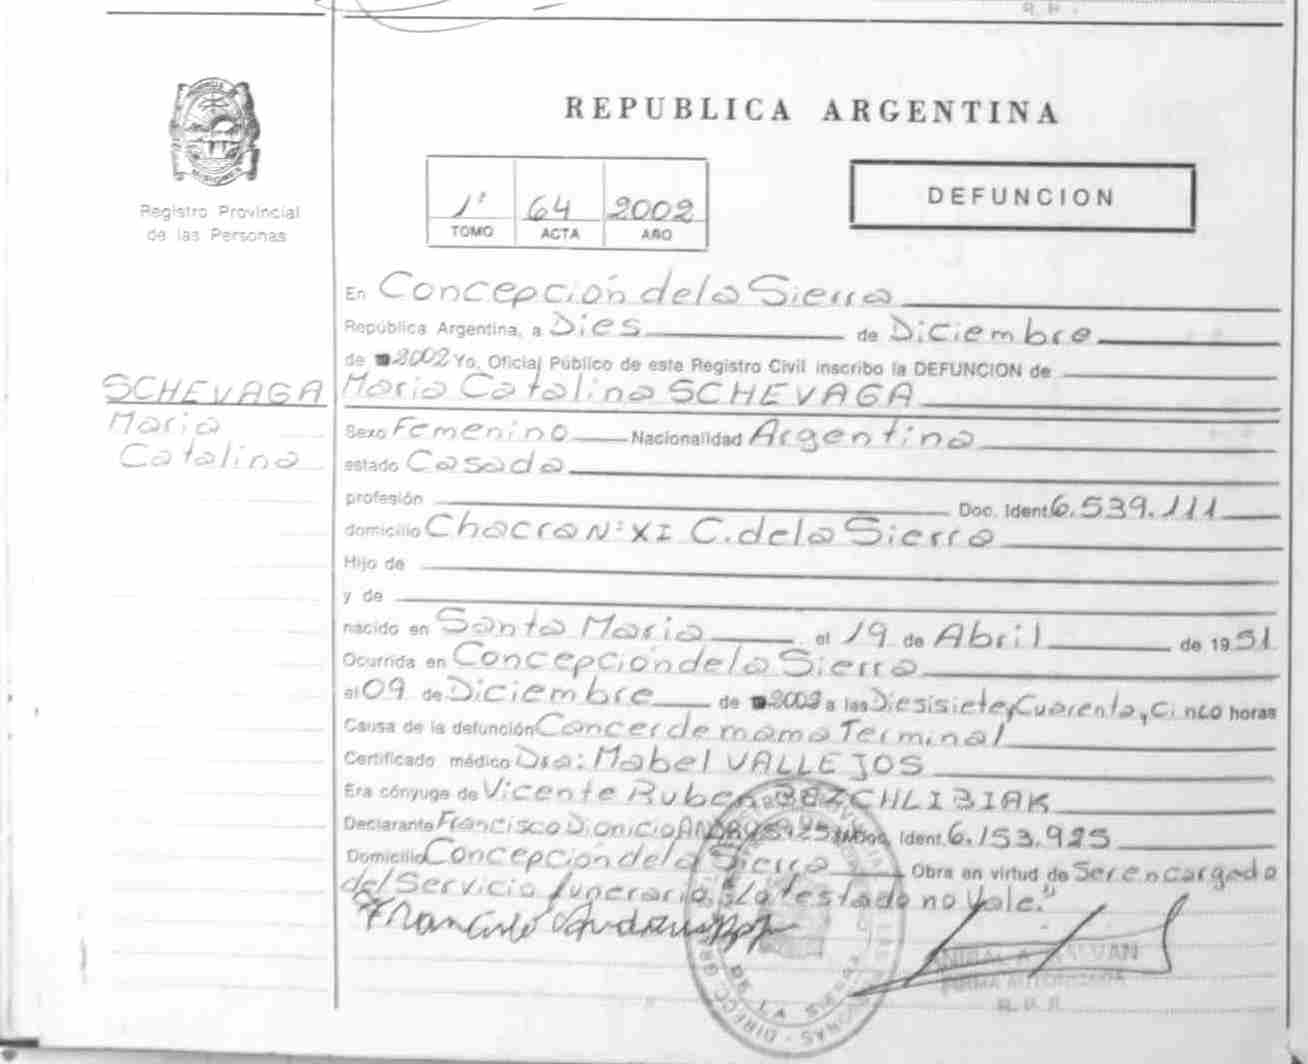 REPUBLICA ARGENTINA
Registro Provincial
de las Personas
1º 64 2002
TOMO ACTA AÑO
DEFUNCION
En Concepción de la Sierra
República Argentina, a Dies de Diciembre
de 2002 Yo, Oficial Público de este Registro Civil inscribo la DEFUNCION de
SCHEVAGA
Maria
Catalina
Maria Catalina SCHEVAGA
Sexo Femenino Nacionalidad Argentina
estado Casada
profesión Doc. Ident. 6.539.111
domicilio Chacra Nº XI C. de la Sierra
Hijo de
y de
nacido en Santa Maria el 19 de Abril de 1951
Ocurrida en Concepción de la Sierra
el 09 de Diciembre de 2002 a las Diesisiete y Cuarenta y Cinco horas
Causa de la defunción Cancer de mama Terminal
Certificado médico Dra: Mabel VALLEJOS
Era cónyuge de Vicente Ruben
Declarante Francisco Dionicio Doc. Ident. 6.153.925
Domicilio Concepción de la Sierra Obra en virtud de Ser encargado
del Servicio funerario, "Lo testado no Vale."
FIRMA AUTORIZADA
R. P. P.
DE LA SIERRA